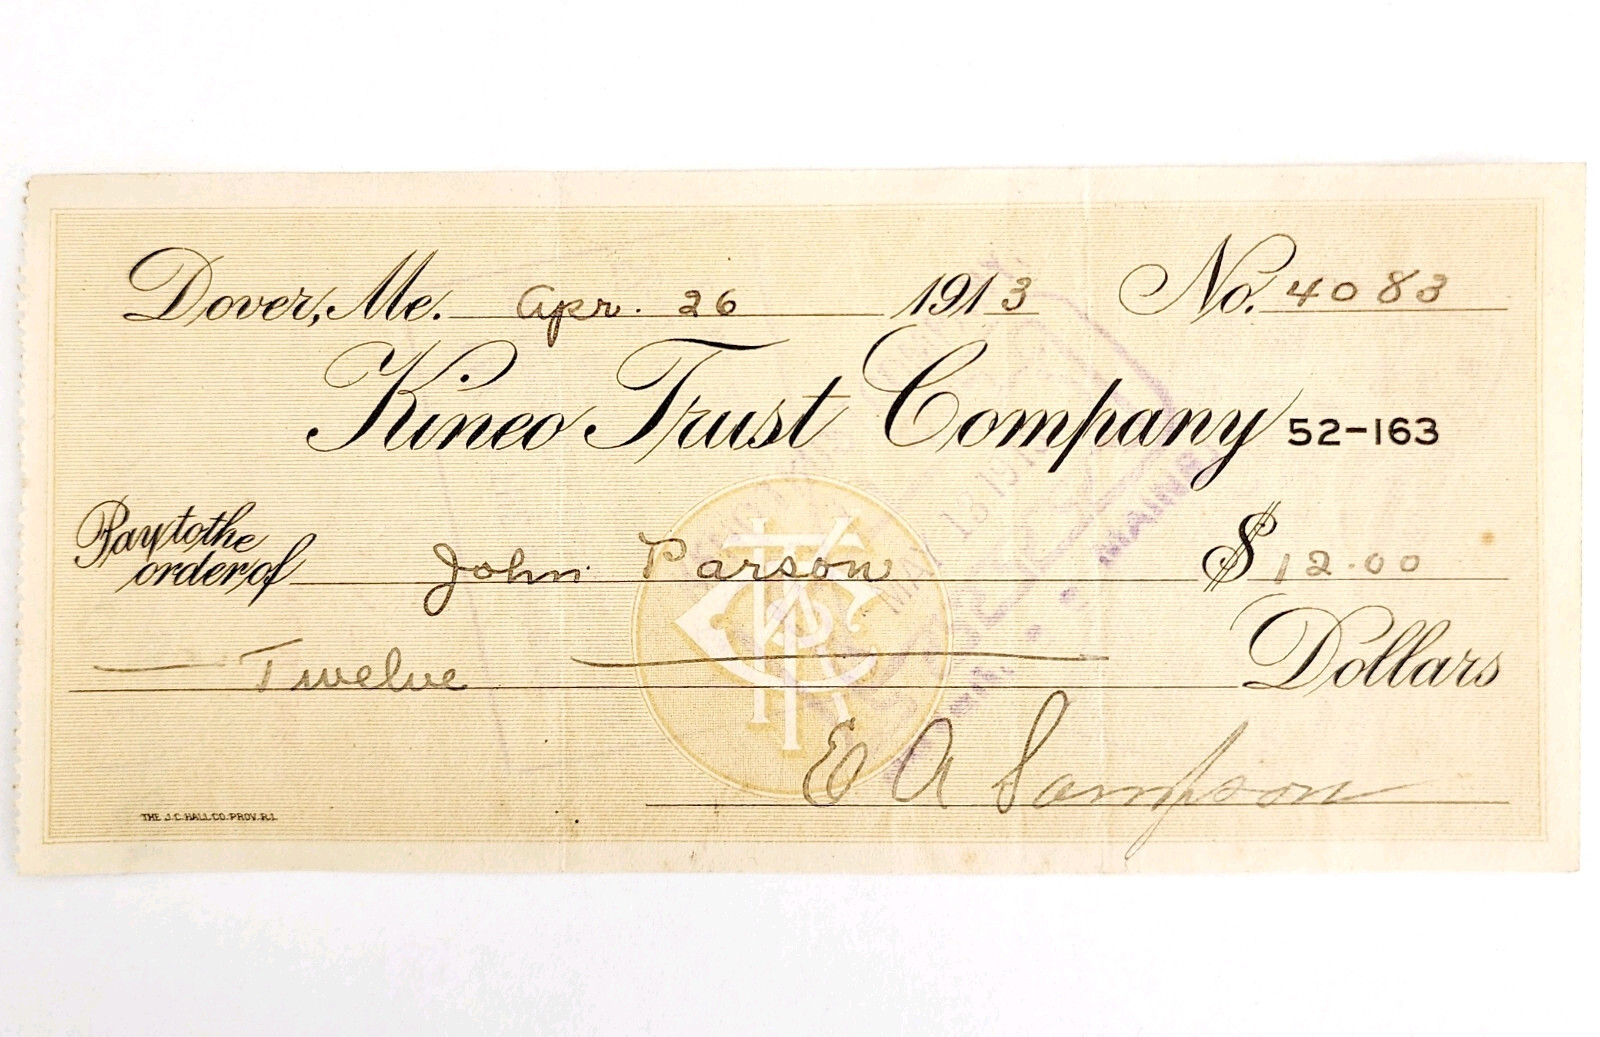 Dover, Me. Apr. 26 1913 No. 4083
Kineo Trust Company 52-163
Pay to the
order of John Parson $12.00
Twelve Dollars
E A Sampson
THE J.C. HALL CO. PROV. R.I.
MAY 13 191
MAINE